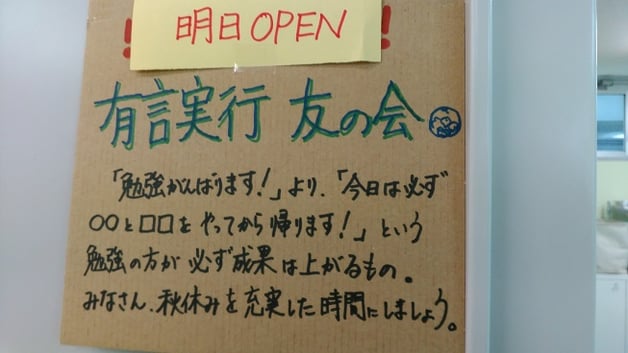 明日OPEN
!!
有言実行 友の会
「勉強がんばります!」より、「今日は必ず
○○と□□をやってから帰ります!」という
勉強の方が必ず成果は上がるもの。
みなさん、秋休みを充実した時間にしましょう。